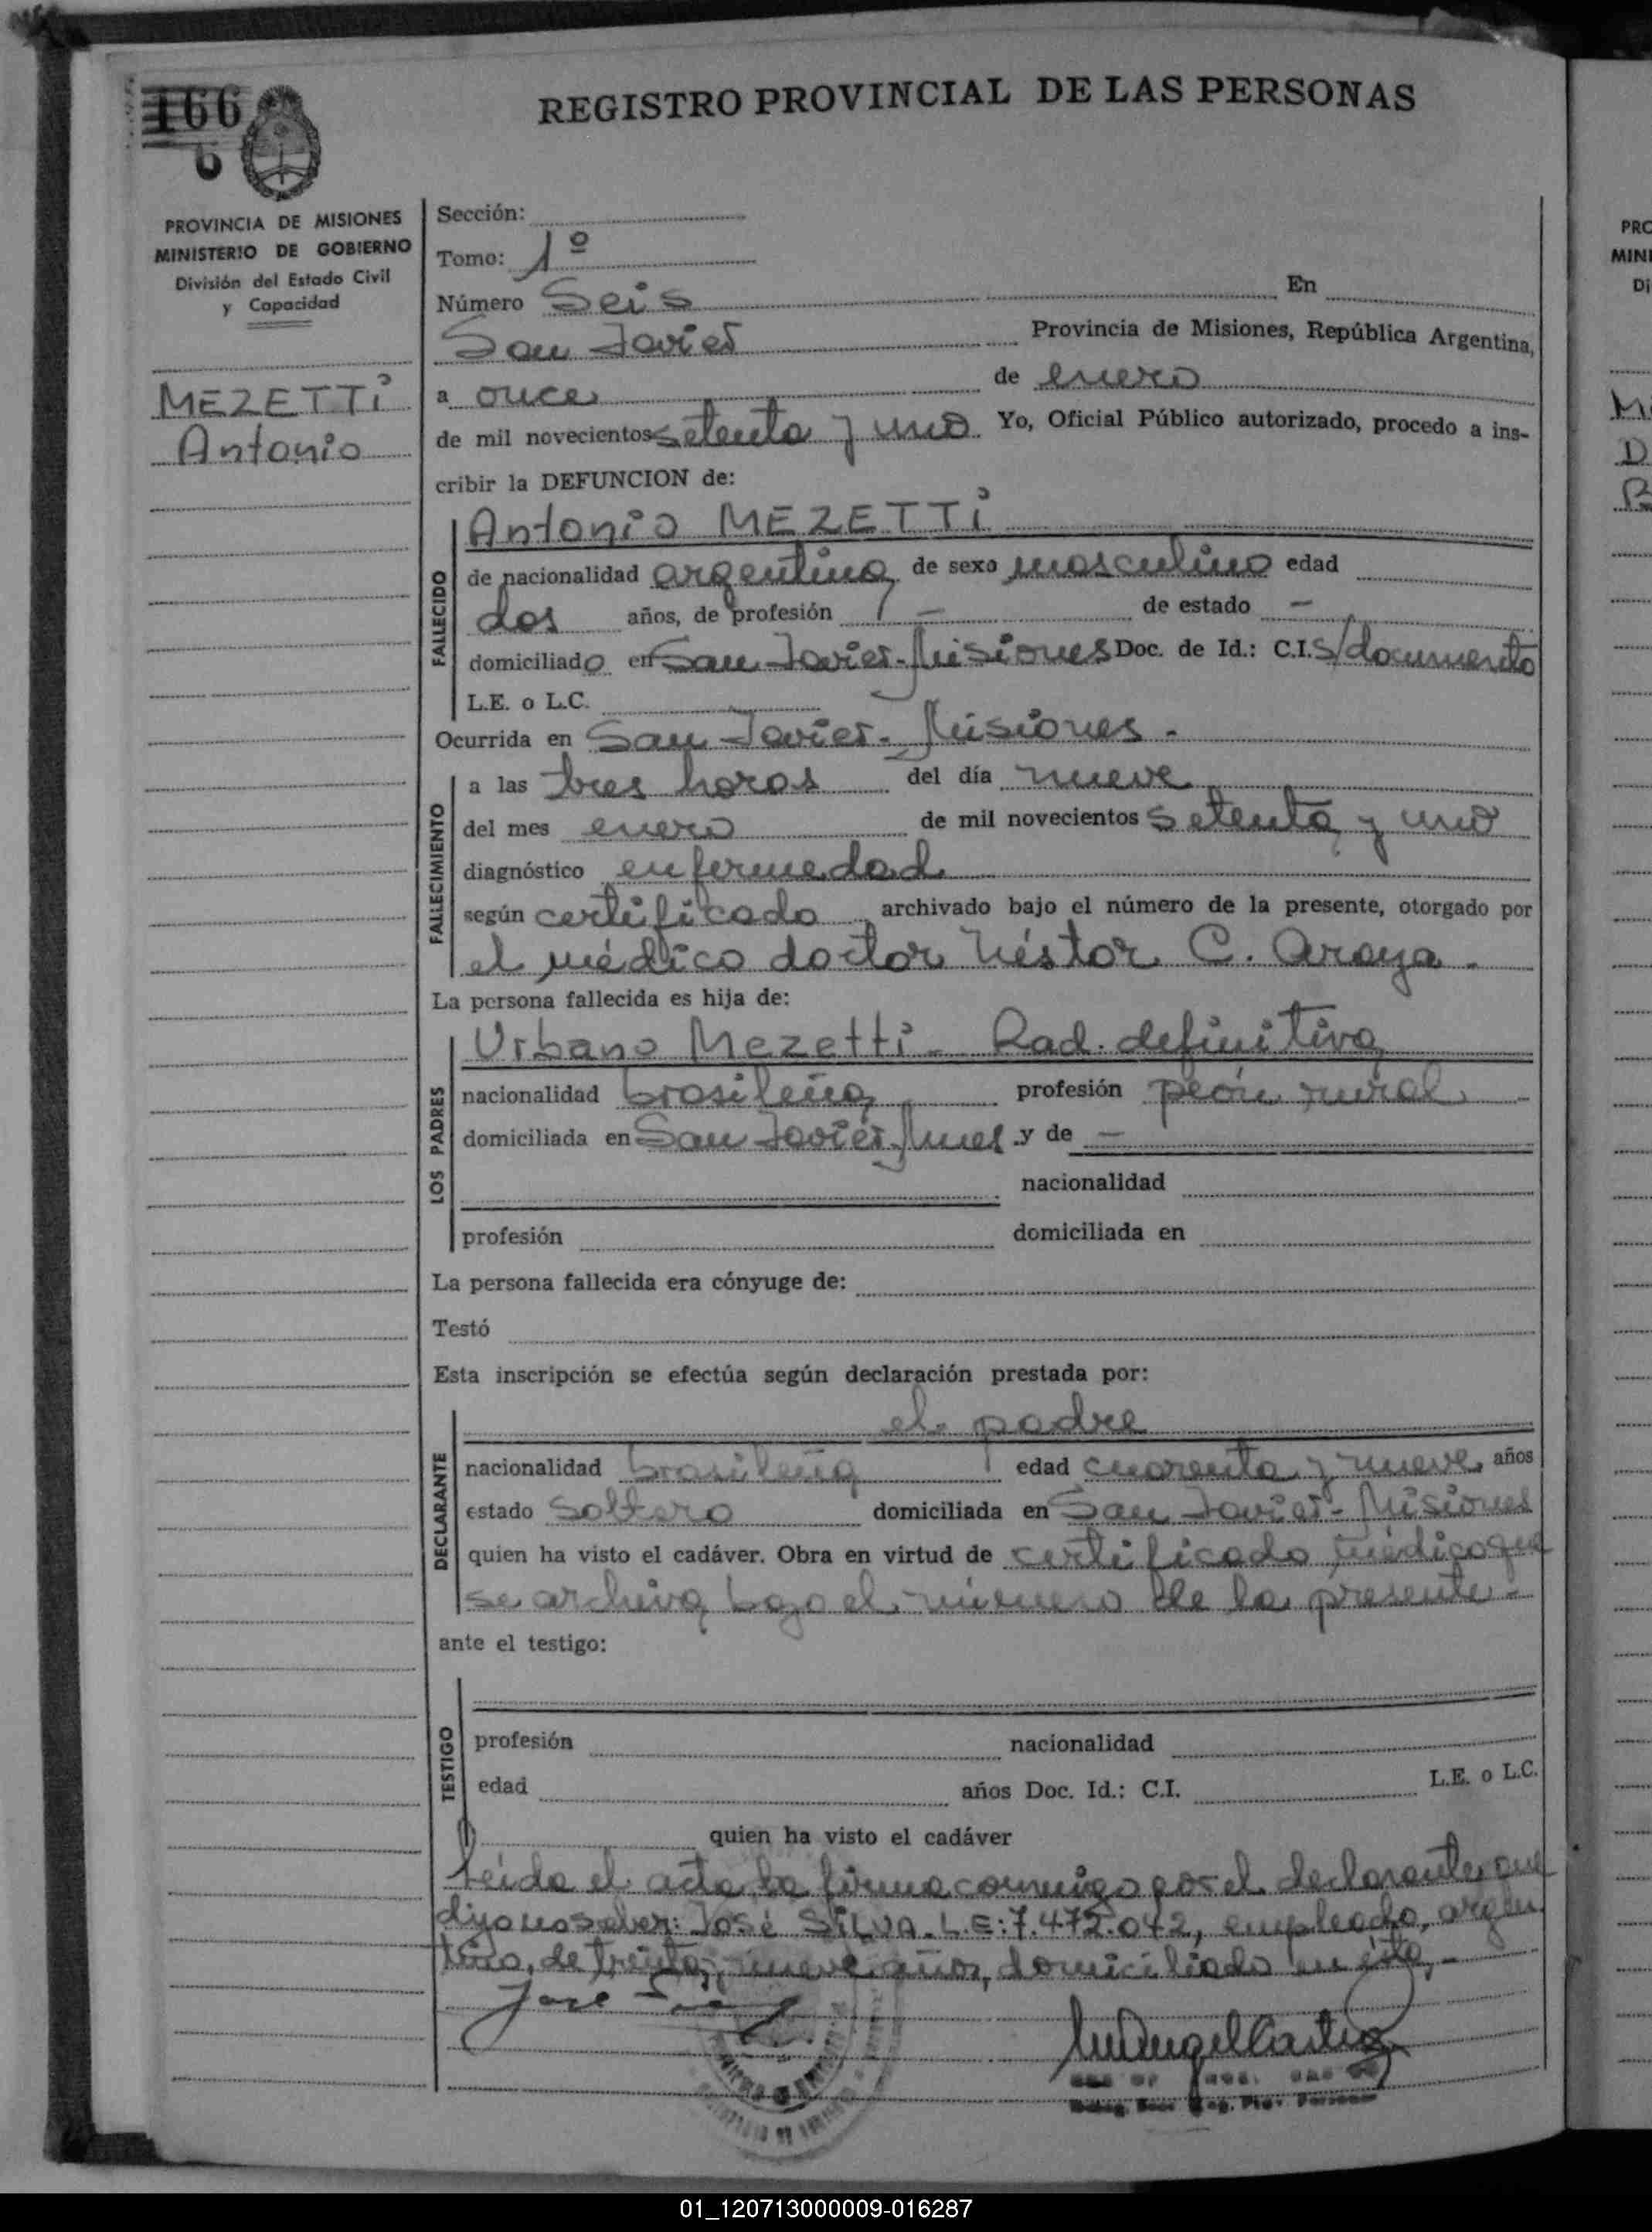 REGISTRO PROVINCIAL DE LAS PERSONAS
166
6
PROVINCIA DE MISIONES
MINISTERIO DE GOBIERNO
División del Estado Civil
y Capacidad
MEZETTi
Antonio
Sección:
Tomo: 1º
Número Seis En
San Javier Provincia de Misiones, República Argentina,
a once de enero
de mil novecientos setenta y uno Yo, Oficial Público autorizado, procedo a ins-
cribir la DEFUNCION de:
FALLECIDO
Antonio MEZETTi
de nacionalidad argentina, de sexo masculino edad
dos años, de profesión - de estado -
domiciliado en San Javier-Misiones Doc. de Id.: C.I. S/documento
L.E. o L.C.
Ocurrida en San Javier- Misiones -
FALLECIMIENTO
a las tres horas del día nueve
del mes enero de mil novecientos setenta y uno
diagnóstico enfermedad
según certificado archivado bajo el número de la presente, otorgado por
el médico doctor Néstor C. Araya -
La persona fallecida es hija de:
LOS PADRES
Urbano Mezetti - Rad. definitiva
nacionalidad brasileña profesión peón rural -
domiciliada en San Javier-Mnes y de -
nacionalidad
profesión domiciliada en
La persona fallecida era cónyuge de:
Testó
Esta inscripción se efectúa según declaración prestada por:
DECLARANTE
el padre
nacionalidad brasileña edad cuarenta y nueve años
estado soltero domiciliada en San Javier-Misiones
quien ha visto el cadáver. Obra en virtud de certificado médico que
se archiva bajo el número de la presente -
ante el testigo:
TESTIGO
profesión nacionalidad
edad años Doc. Id.: C.I. L.E. o L.C.
quien ha visto el cadáver
Leída el acta la firma conmigo por el declarante que
dijo no saber: José SiLVA. L.E: 7.472.042, empleado, argen
tino, de treinta y nueve años, domiciliado en ésta, -
José
01_120713000009-016287